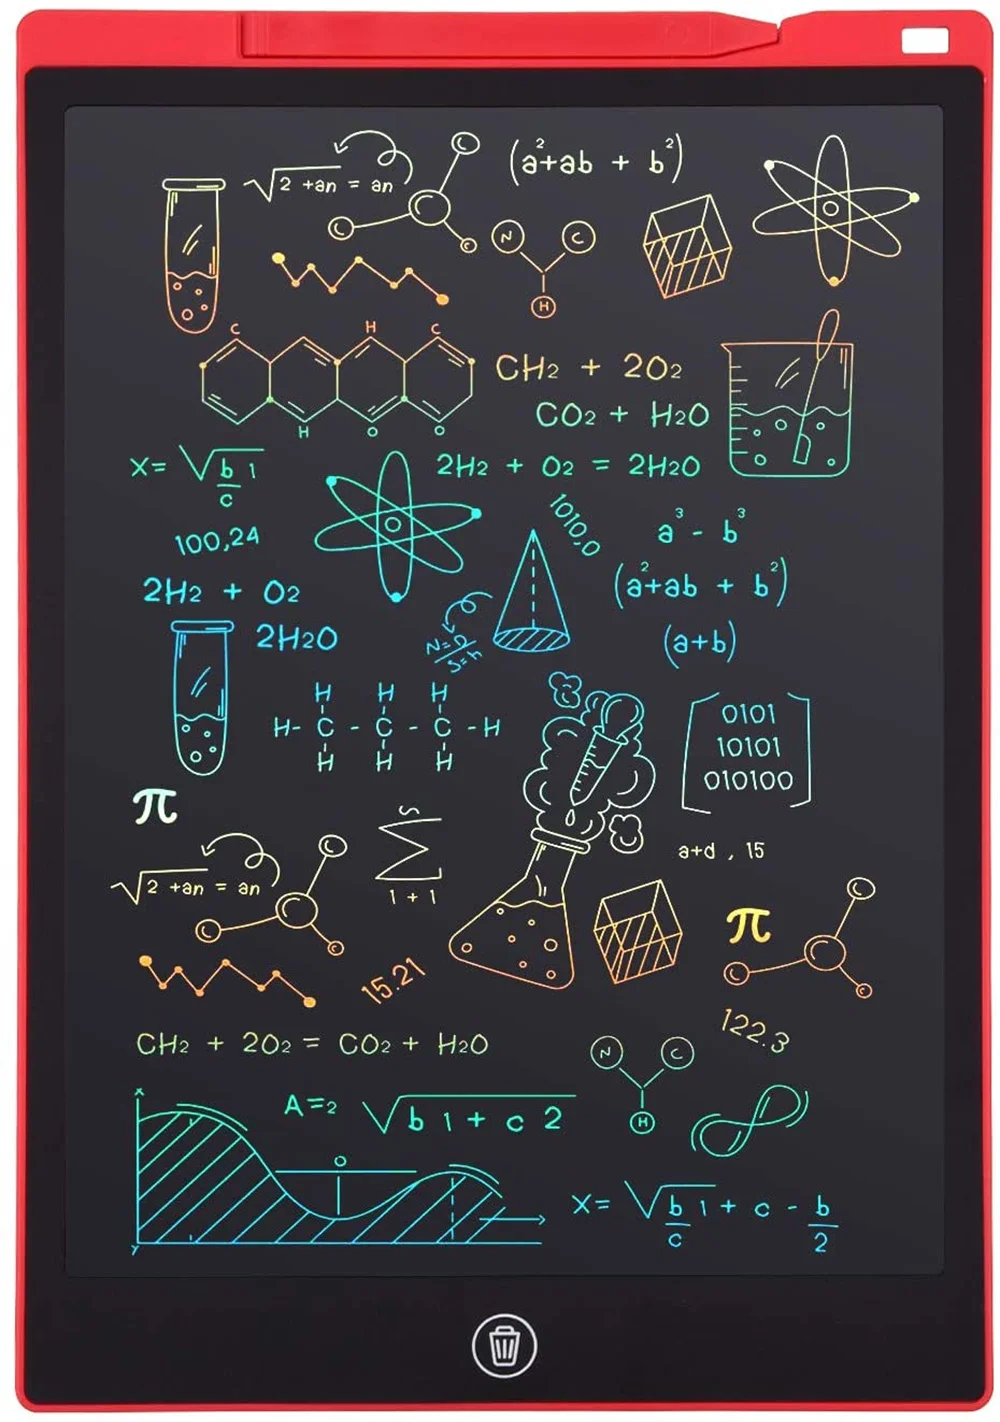 √2 +an = an
(a²+ab + b²)
N C
H
C H C
H O O
CH2 + 2O2
CO2 + H2O
X= √b 1
c
2H2 + O2 = 2H2O
1010,0
100,24
a³ - b³
2H2 + O2
(a²+ab + b²)
2H2O
(a+b)
H H H
H- C - C - C -H
H H H
0101
10101
010100
π
∑
1 + 1
a+d , 15
√2 +an = an
π
15.21
122.3
CH2 + 2O2 = CO2 + H2O
N C
H
x
A=2 √b 1 + c 2
O
X= √b 1 + c - b
c 2
Y